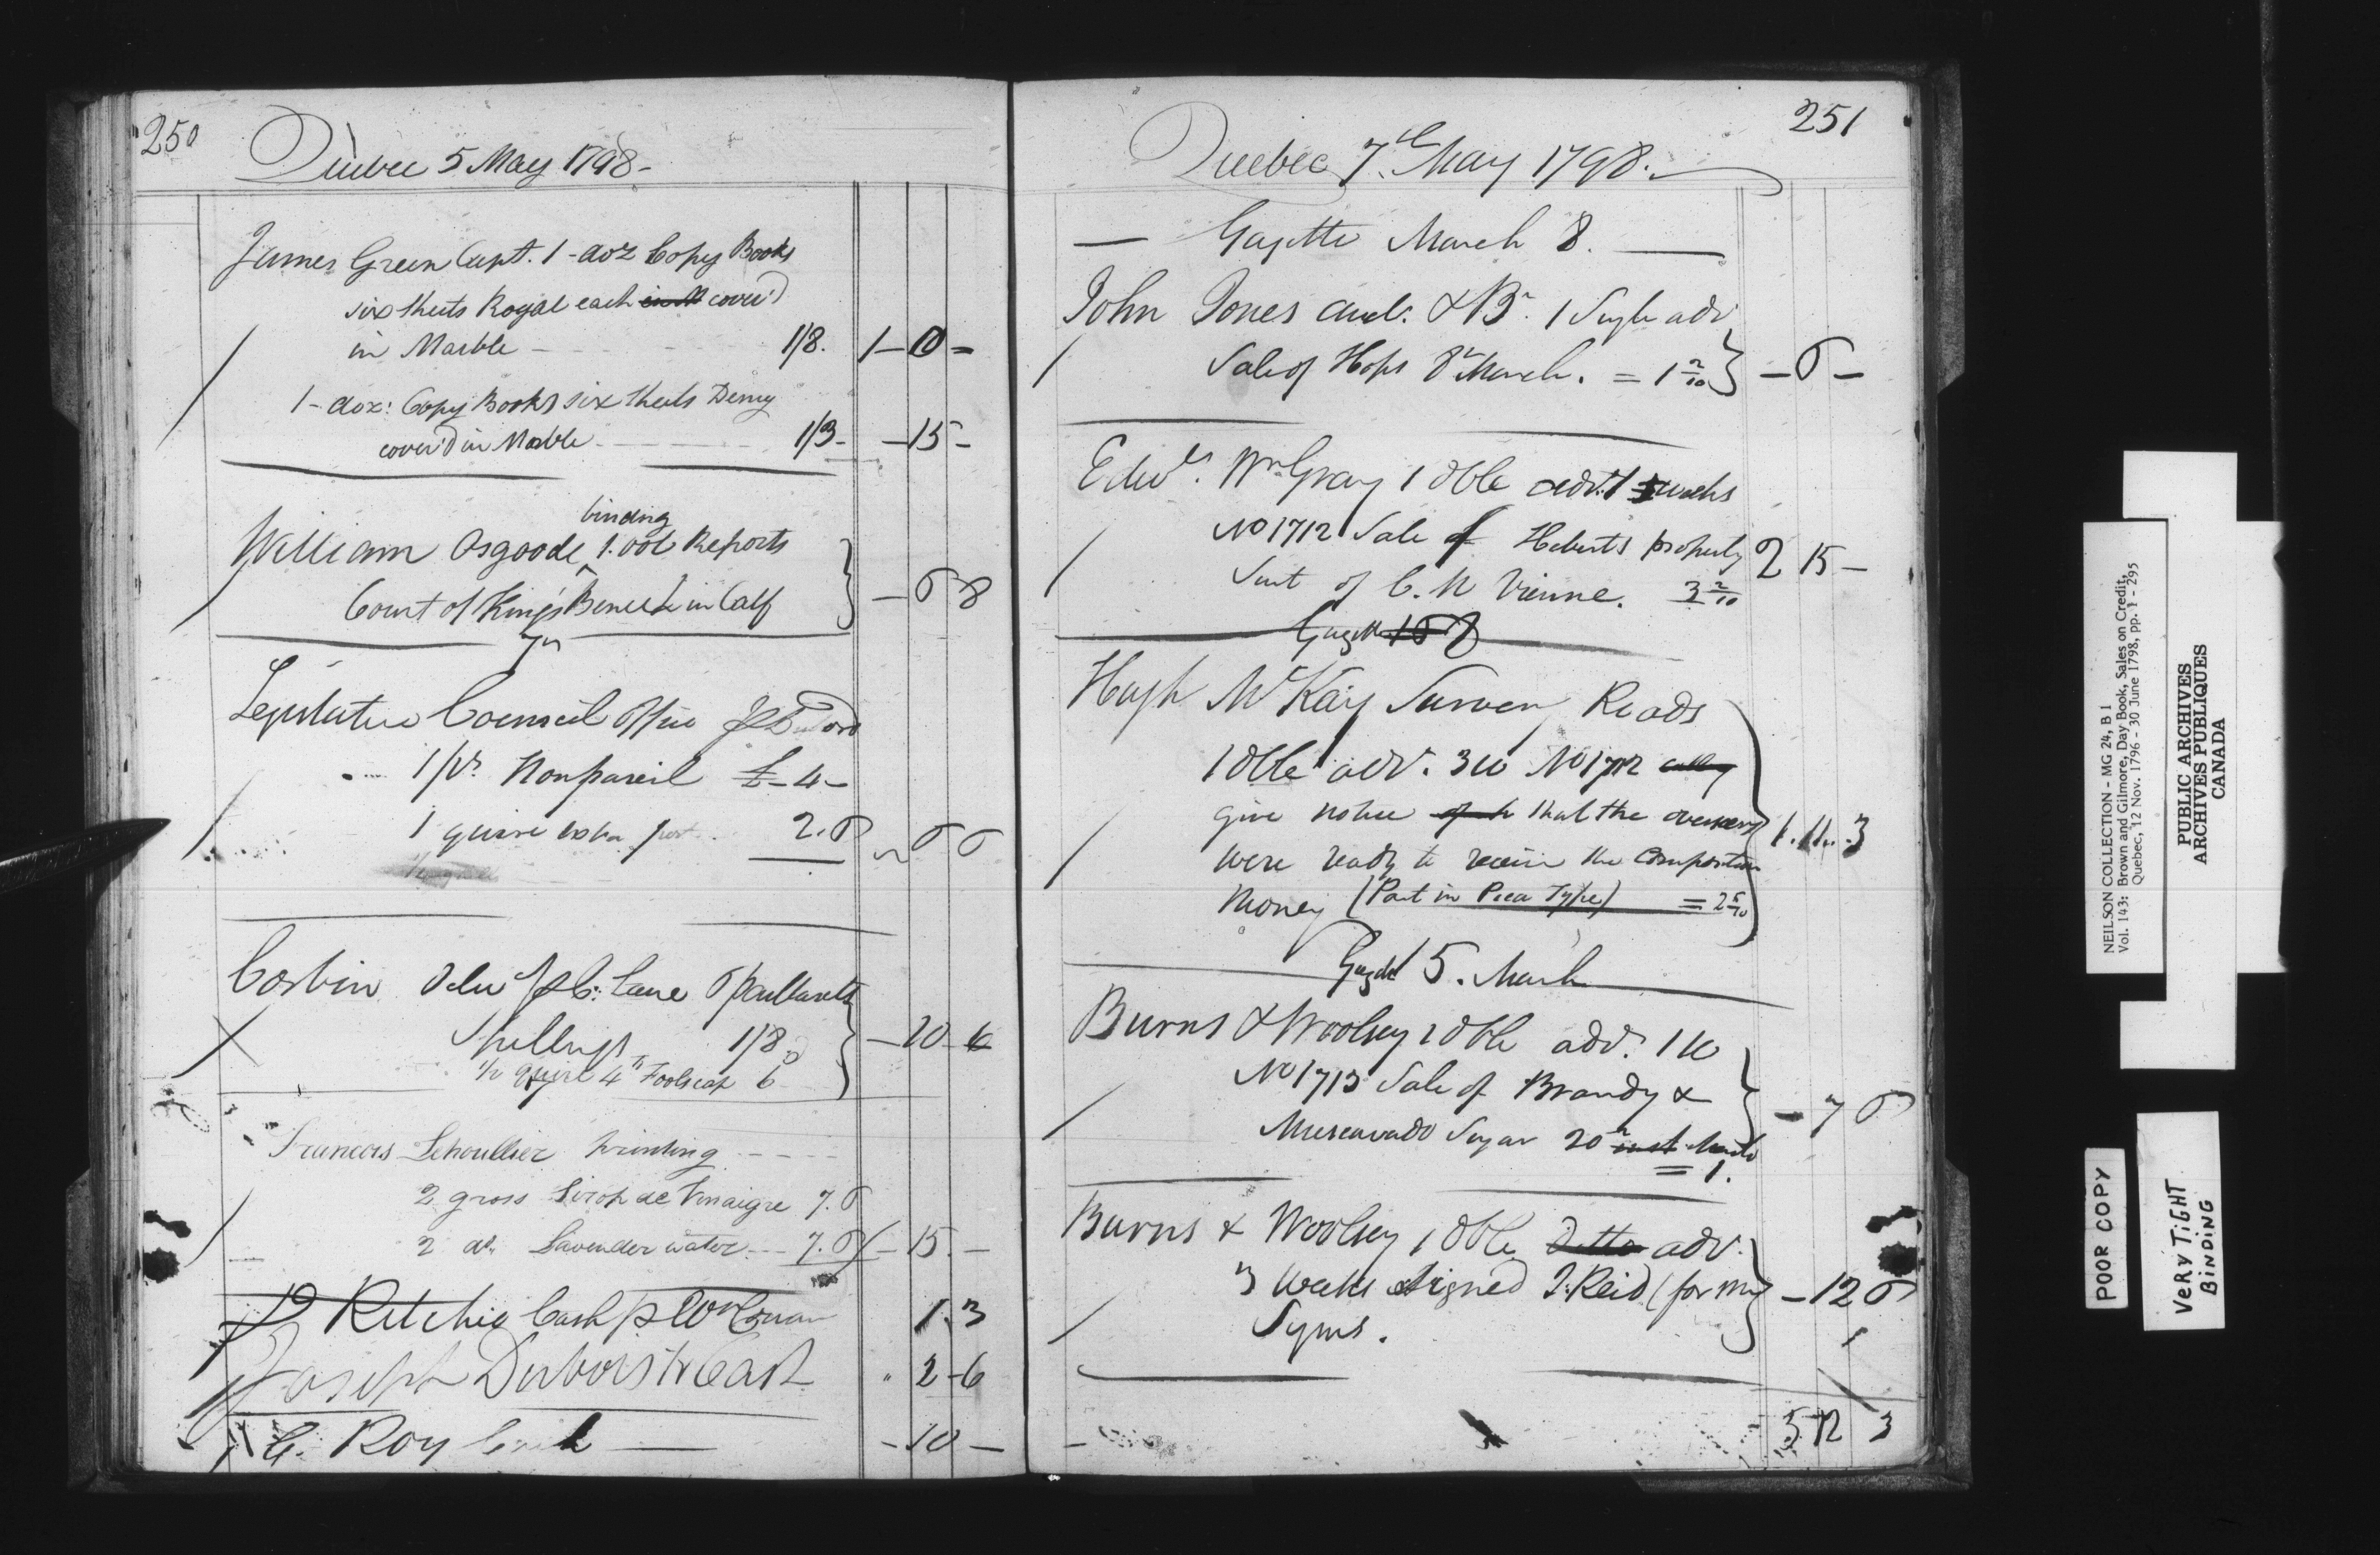 250
Quebec 5 May 1798 -
James Green Capt. 1 - doz Copy Books
six sheets Royal each cover'd
in Marble - 1/8. 1 - 0 =
1 - doz: Copy Books six sheets Demy
cover'd in Marble - 1/3 - - 15 -
binding
William Osgoode 1. vol Reports
Court of King's Bench in Calf } - 6 8
Legislative Council Office
1 pr. Nonpareil £ - 4 -
1 quire post 2. 6 6 6
Corbin
Spellings 1/8
1/2 quire 4to Foolscap 6 } - 10 - 6
Francois Lehoullier printing
2 gross Sirop de Vinaigre 7. 6
2 do. Lavender water - - 7. 6 - 15. -
D Ritchie Cash p 1. 3
Joseph Dubois Cash 2 - 6
C. Roy Cash - 10 -
251
Quebec 7th May 1798.
- Gazette March 8. -
John Jones auct. & Br. 1 Single adv
Sale of Hops 8th March. = 1 2/10 } - 6 -
Edwd. Wm Gray 1 dble advt. weeks
No 1712 Sale of Heberts property 2 15 -
Suit of C. N Vienne. 3 2/10
Gazette
Hugh McKay Survey Roads
1 dble adv. 3 w No 1712
give notice that the overseers
were ready to receive the Composition
Money (Part in Pica Type) = 2 5/10 } 1. 11. 3
Gazette 15. March
Burns & Woolsey 1 dble adv. 1 w
No 1713 Sale of Brandy &
Muscavado Sugar 20th March } - 7 6
= 1.
Burns & Woolsey 1 dble Ditto adv.
3 weeks signed J. Reid (for Mr } - 12 6
Syms.
5 12 3
NEILSON COLLECTION - MG 24, B 1
Vol. 143: Brown and Gilmore, Day Book, Sales on Credit,
Quebec, 12 Nov. 1796 - 30 June 1798, pp. 1 - 295
PUBLIC ARCHIVES
ARCHIVES PUBLIQUES
CANADA
POOR COPY
VERY TIGHT
BINDING